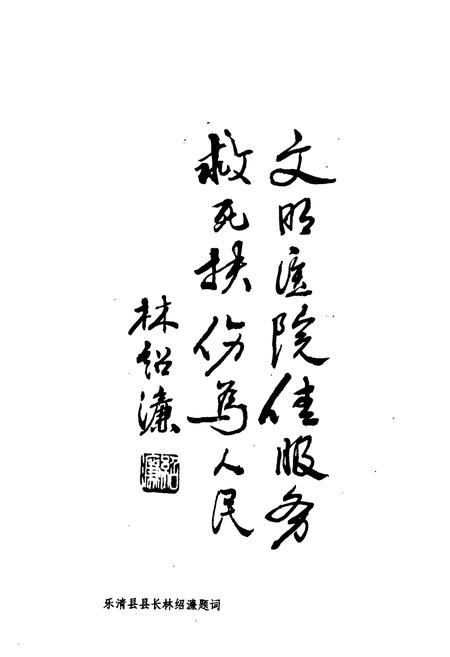 文明医院佳服务
救死扶伤为人民
林绍濂
绍濂
乐清县县长林绍濂题词